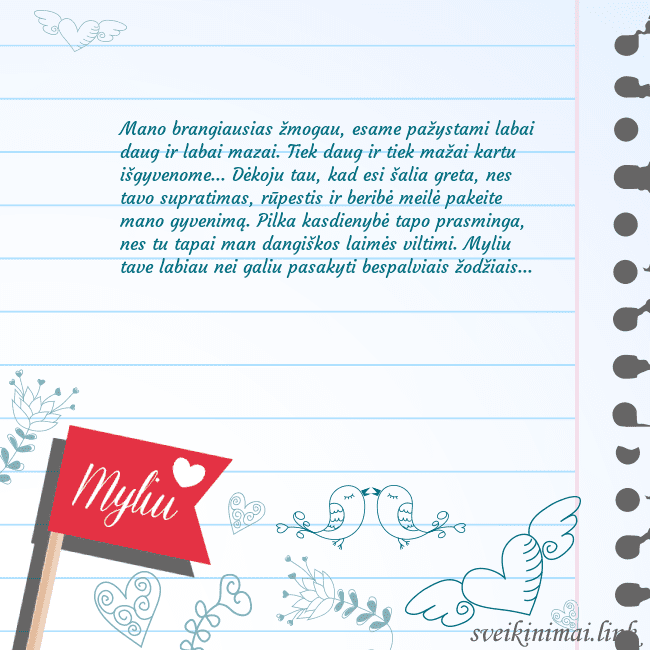 Mano brangiausias žmogau, esame pažystami labai
daug ir labai mazai. Tiek daug ir tiek mažai kartu
išgyvenome... Dėkoju tau, kad esi šalia greta, nes
tavo supratimas, rūpestis ir beribė meilė pakeite
mano gyvenimą. Pilka kasdienybė tapo prasminga,
nes tu tapai man dangiškos laimės viltimi. Myliu
tave labiau nei galiu pasakyti bespalviais žodžiais...
Myliu
sveikinimai.link